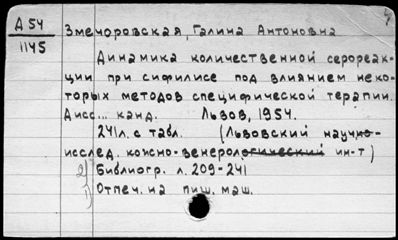 А 54
1145
Зменоровская, Галина Антоновна
Динамика количественной серореак-
ции при сифилисе под влиянием неко-
торых методов специфической терапии.
Дисс... канд. Львов, 1954.
241л. с табл. (Львовский научно-
исслед. кожно-венерологический ин-т)
2) Библиогр. л. 209-241
1) Отпеч. на пиш. маш.